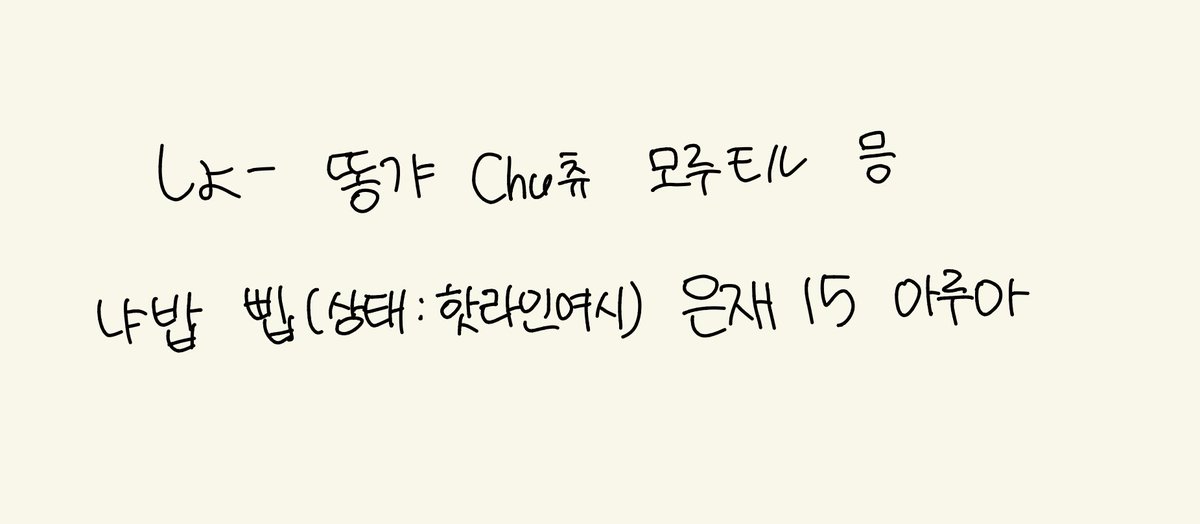 しょー 똥갸 Chu츄 모루モル 믕
냐밥 삡(상태:핫라인여시) 은재 15 아루아